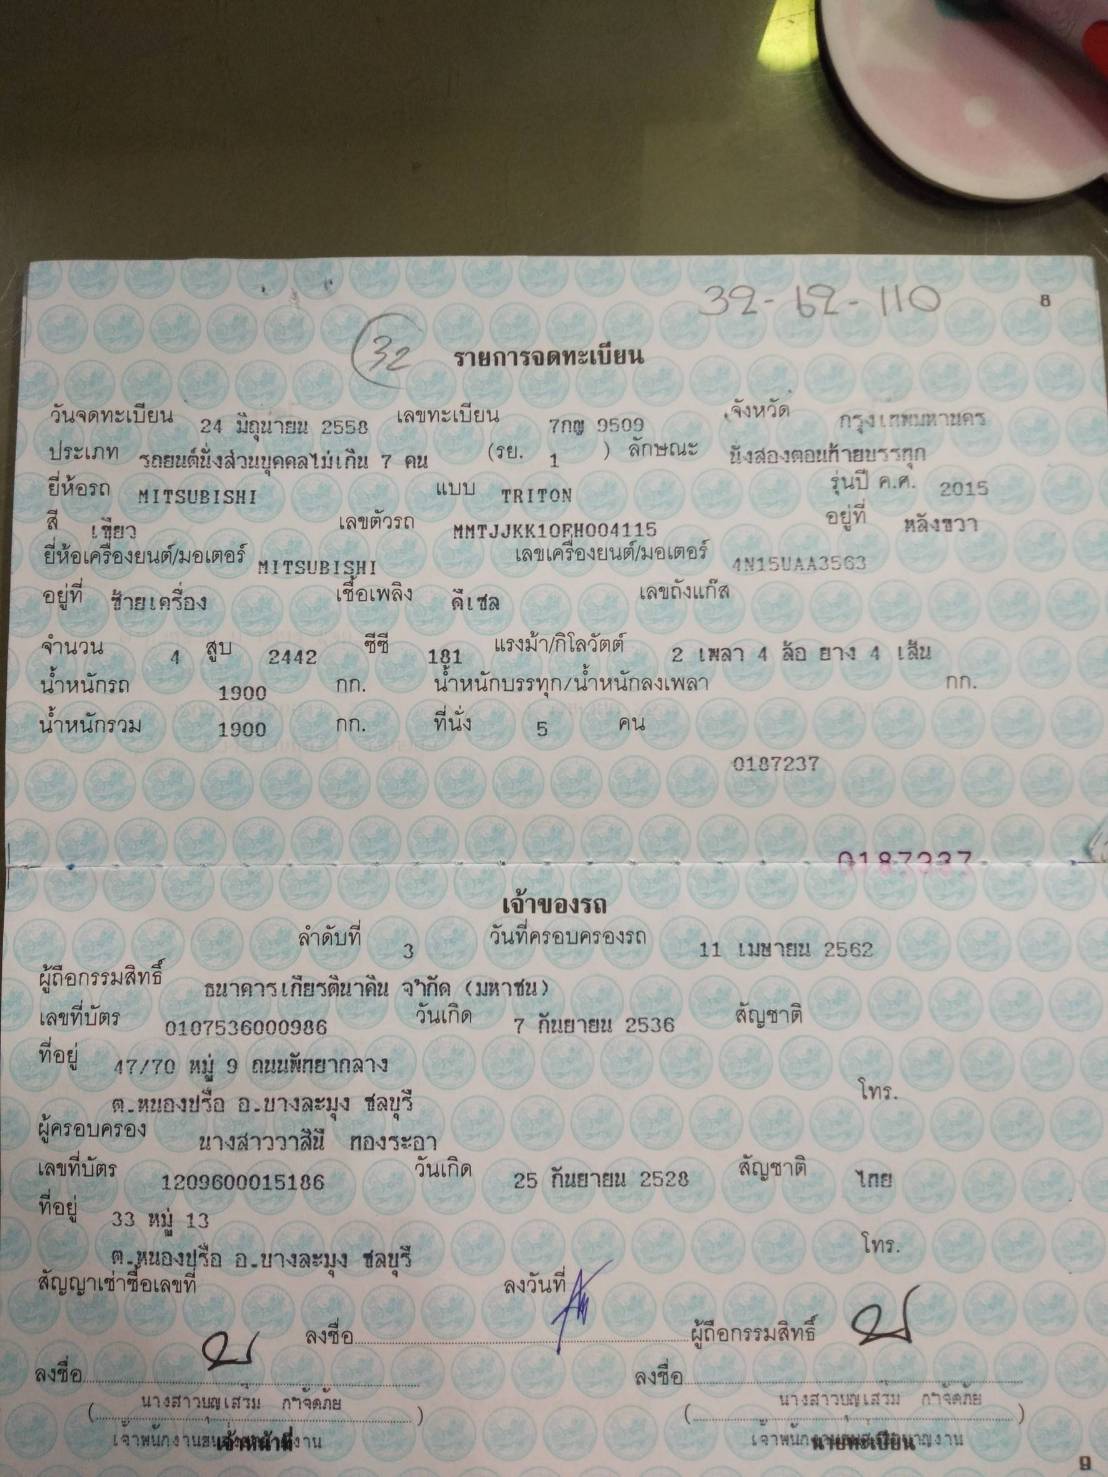 32-62-110
8
32
รายการจดทะเบียน
วันจดทะเบียน 24 มิถุนายน 2558 เลขทะเบียน 7กญ 9509 จังหวัด กรุงเทพมหานคร
ประเภท รถยนต์นั่งส่วนบุคคลไม่เกิน 7 คน (รย. 1 ) ลักษณะ นั่งสองตอนท้ายบรรทุก
ยี่ห้อรถ MITSUBISHI แบบ TRITON รุ่นปี ค.ศ. 2015
สี เขียว เลขตัวรถ MMTJJKK10FH004115 อยู่ที่ หลังขวา
ยี่ห้อเครื่องยนต์/มอเตอร์ MITSUBISHI เลขเครื่องยนต์/มอเตอร์ 4N15UAA3563
อยู่ที่ ซ้ายเครื่อง เชื้อเพลิง ดีเซล เลขถังแก๊ส
จำนวน 4 สูบ 2442 ซีซี 181 แรงม้า/กิโลวัตต์ 2 เพลา 4 ล้อ ยาง 4 เส้น
น้ำหนักรถ 1900 กก. น้ำหนักบรรทุก/น้ำหนักลงเพลา กก.
น้ำหนักรวม 1900 กก. ที่นั่ง 5 คน
0187237
0187237
เจ้าของรถ
ลำดับที่ 3 วันที่ครอบครองรถ 11 เมษายน 2562
ผู้ถือกรรมสิทธิ์ ธนาคารเกียรตินาคิน จำกัด (มหาชน)
เลขที่บัตร 0107536000986 วันเกิด 7 กันยายน 2536 สัญชาติ
ที่อยู่ 47/70 หมู่ 9 ถนนพัทยากลาง
ต.หนองปรือ อ.บางละมุง ชลบุรี โทร.
ผู้ครอบครอง นางสาววาสินี ทองระอา
เลขที่บัตร 1209600015186 วันเกิด 25 กันยายน 2528 สัญชาติ ไทย
ที่อยู่ 33 หมู่ 13
ต.หนองปรือ อ.บางละมุง ชลบุรี โทร.
สัญญาเช่าซื้อเลขที่ ลงวันที่
ลงชื่อ ผู้ถือกรรมสิทธิ์
ลงชื่อ ลงชื่อ
(นางสาวบุญเสริม กำจัดภัย) (นางสาวบุญเสริม กำจัดภัย)
เจ้าหน้าที่ นายทะเบียน
9